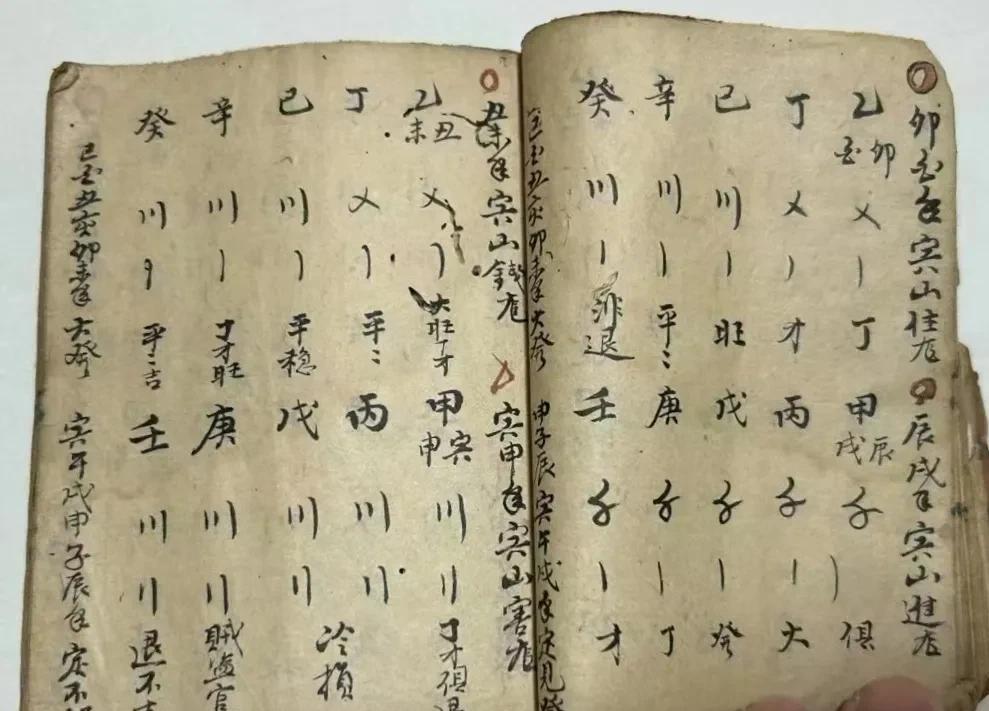 卯酉年寅山住店
乙 丁 己 辛 癸
酉卯
㐅 㐅 川 川 川
丨 丨 丨 丨 丨
丁 才 旺 平ミ 退
辰戌年寅山進店
甲 丙 戊 庚 壬
戌辰
丨 丨 丨 丨 丨
俱 大 發 丁 才
丑亥卯未年大發
申子辰寅午戌年定見發
丑未年寅山錢店
乙 丁 己 辛 癸
未丑
㐅 㐅 川 川 川
丨 丨 丨 丨 丨
大旺丁才 平ミ 平穩 丁才旺 平ミ吉
寅申年寅山害店
甲 丙 戊 庚 壬
申寅
川 川 川 川 川
〢 〢 〢 〢 〢
丁才俱退 冷損 賊盜官 退不吉
巳酉丑亥卯未年大發
寅午戌申子辰年定不